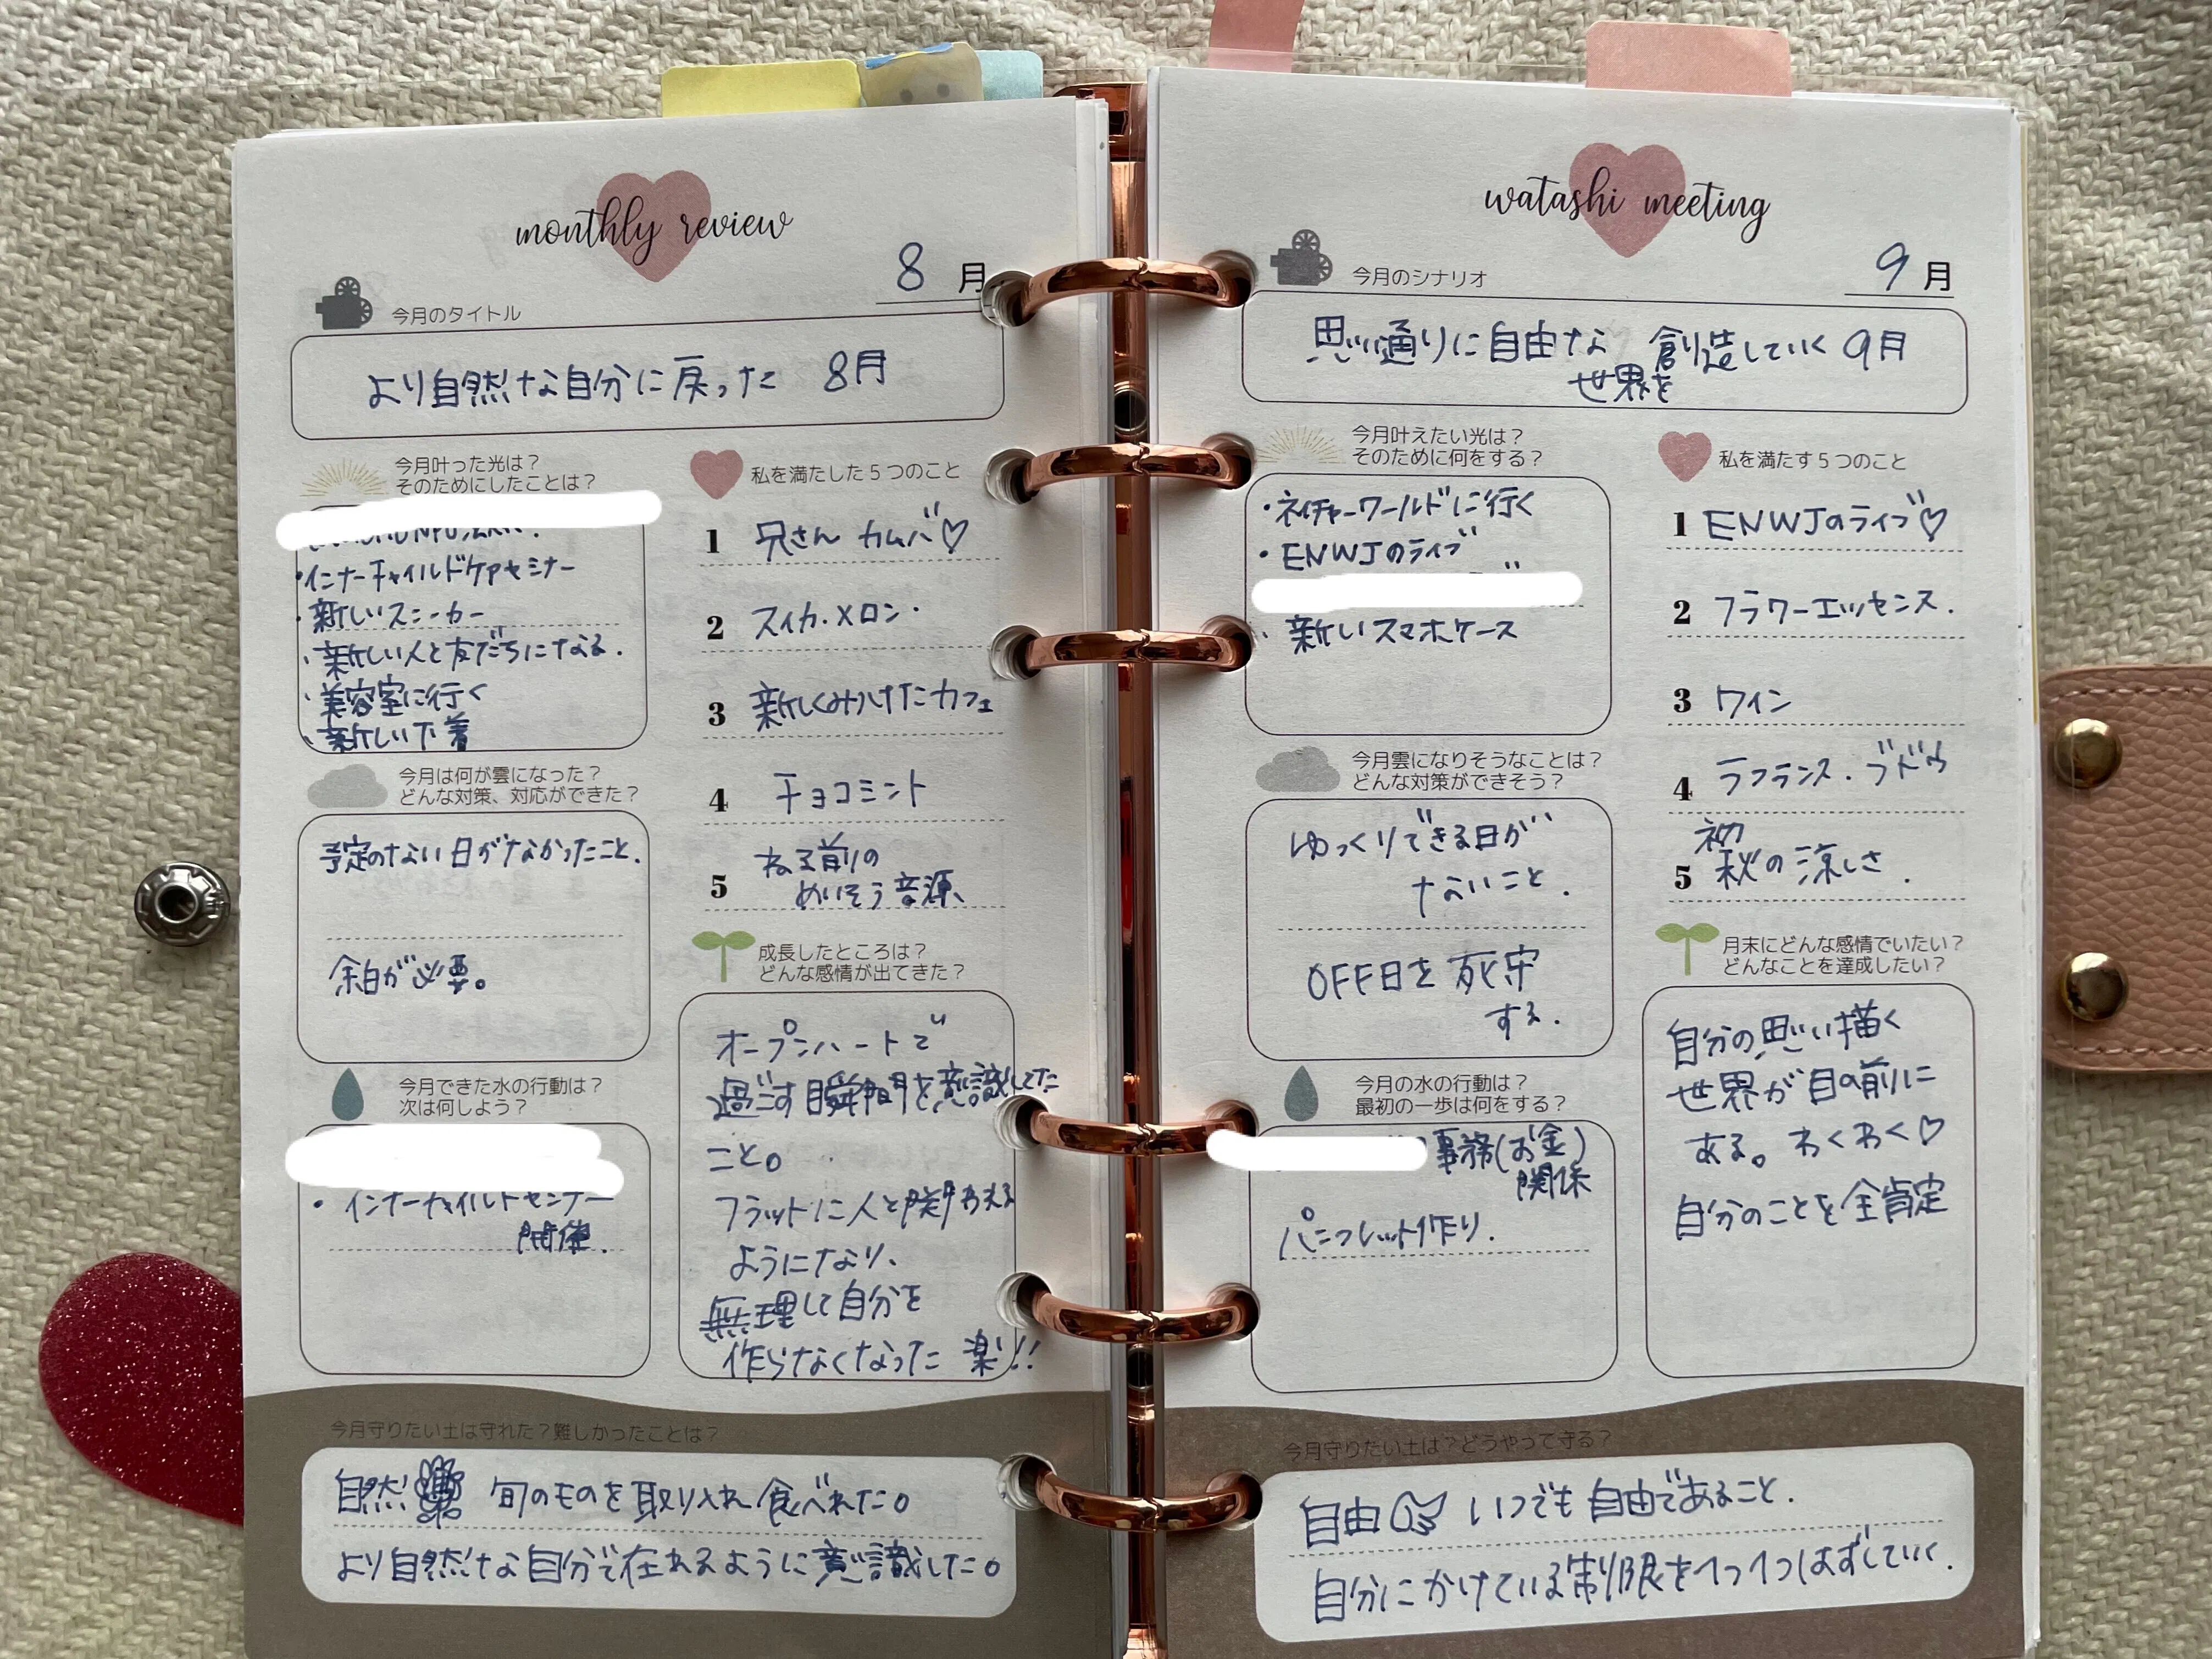 monthly review
8月
今月のタイトル
より自然な自分に戻った 8月
今月叶った光は?
そのためにしたことは?
・インナーチャイルドケアセミナー
・新しいスニーカー
・新しい人と友だちになる.
・美容室に行く
・新しい下着
私を満たした5つのこと
1 兄さん カムバ♡
2 スイカ.メロン.
3 新しくみつけたカフェ
4 チョコミント
5 ねる前の
めいそう音源、
今月は何が雲になった?
どんな対策、対応ができた?
予定のない日がなかったこと.
余白が必要。
成長したところは?
どんな感情が出てきた?
オープンハートで
過ごす瞬間を意識してた
こと。
フラットに人と関われる
ようになり、
無理して自分を
作らなくなった 楽!!
今月できた水の行動は?
次は何しよう?
・インナーチャイルドセミナー
開催.
今月守りたい土は守れた?難しかったことは?
自然 旬のものを取り入れ食べれた。
より自然な自分で在れるように意識した。
watashi meeting
9月
今月のシナリオ
思い通りに自由な世界を創造していく9月
今月叶えたい光は?
そのために何をする?
・ネイチャーワールドに行く
・ENWJのライブ
・新しいスマホケース
私を満たす5つのこと
1 ENWJのライブ♡
2 フラワーエッセンス.
3 ワイン
4 ラフランス.ブドウ
5 初秋の涼しさ.
今月雲になりそうなことは?
どんな対策ができそう?
ゆっくりできる日が
ないこと.
OFF日を死守
する.
月末にどんな感情でいたい?
どんなことを達成したい?
自分の思い描く
世界が目の前に
ある。わくわく♡
自分のことを全肯定
今月の水の行動は?
最初の一歩は何をする?
事務(お金)
関係
パンフレット作り.
今月守りたい土は?どうやって守る?
自由 いつでも自由であること.
自分にかけている制限を1つ1つはずしていく.